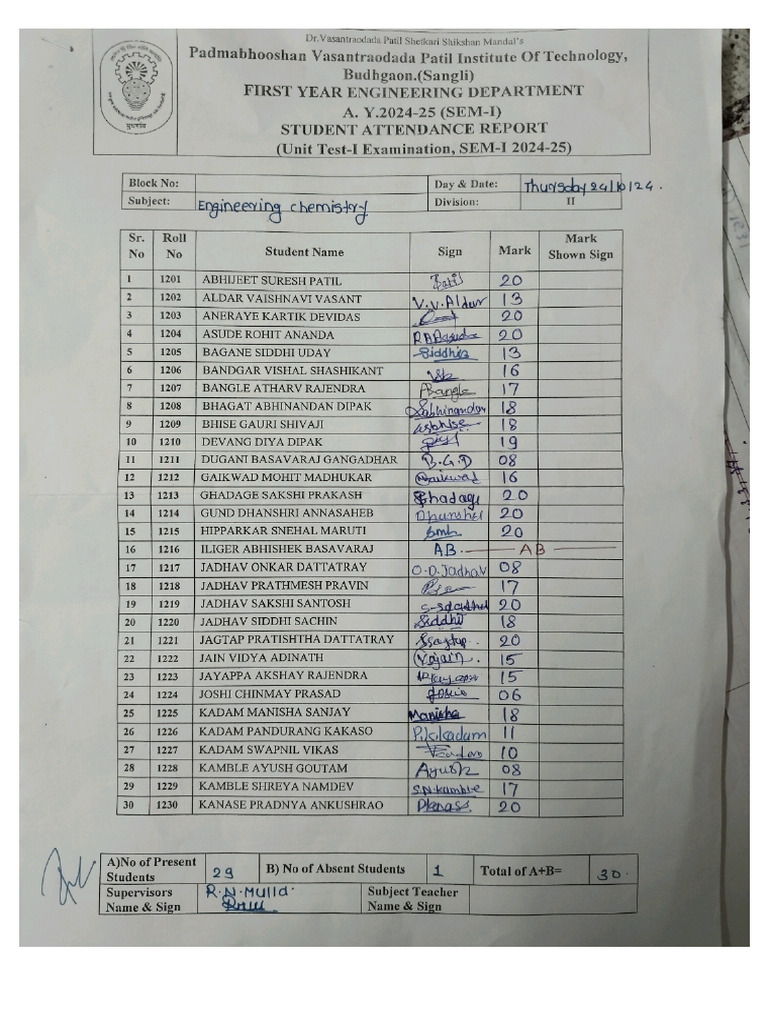 Dr.Vasantraodada Patil Shetkari Shikshan Mandal's
Padmabhooshan Vasantraodada Patil Institute Of Technology,
Budhgaon.(Sangli)
FIRST YEAR ENGINEERING DEPARTMENT
A. Y.2024-25 (SEM-I)
STUDENT ATTENDANCE REPORT
(Unit Test-I Examination, SEM-I 2024-25)
Block No: Day & Date: Thursday 24/10/24.
Subject: Engineering chemistry Division: II
Sr. No Roll No Student Name Sign Mark Mark Shown Sign
1 1201 ABHIJEET SURESH PATIL Patil 20
2 1202 ALDAR VAISHNAVI VASANT V.V.Aldar 13
3 1203 ANERAYE KARTIK DEVIDAS 20
4 1204 ASUDE ROHIT ANANDA R.A.Asude 20
5 1205 BAGANE SIDDHI UDAY Siddhi 13
6 1206 BANDGAR VISHAL SHASHIKANT 16
7 1207 BANGLE ATHARV RAJENDRA Bangle 17
8 1208 BHAGAT ABHINANDAN DIPAK Abhinandan 18
9 1209 BHISE GAURI SHIVAJI 18
10 1210 DEVANG DIYA DIPAK 19
11 1211 DUGANI BASAVARAJ GANGADHAR B.G.D 08
12 1212 GAIKWAD MOHIT MADHUKAR Gaikwad 16
13 1213 GHADAGE SAKSHI PRAKASH Ghadage 20
14 1214 GUND DHANSHRI ANNASAHEB Dhanshri 20
15 1215 HIPPARKAR SNEHAL MARUTI 20
16 1216 ILIGER ABHISHEK BASAVARAJ AB AB
17 1217 JADHAV ONKAR DATTATRAY O.D.Jadhav 08
18 1218 JADHAV PRATHMESH PRAVIN 17
19 1219 JADHAV SAKSHI SANTOSH S-Sjadhav 20
20 1220 JADHAV SIDDHI SACHIN Siddhi 18
21 1221 JAGTAP PRATISHTHA DATTATRAY 20
22 1222 JAIN VIDYA ADINATH Vajain. 15
23 1223 JAYAPPA AKSHAY RAJENDRA 15
24 1224 JOSHI CHINMAY PRASAD 06
25 1225 KADAM MANISHA SANJAY Manisha 18
26 1226 KADAM PANDURANG KAKASO P.k.kadam 11
27 1227 KADAM SWAPNIL VIKAS 10
28 1228 KAMBLE AYUSH GOUTAM Ayush 08
29 1229 KAMBLE SHREYA NAMDEV S.N.kamble 17
30 1230 KANASE PRADNYA ANKUSHRAO 20
A)No of Present Students 29 B) No of Absent Students 1 Total of A+B= 30.
Supervisors Name & Sign R.N.Mulla Subject Teacher Name & Sign